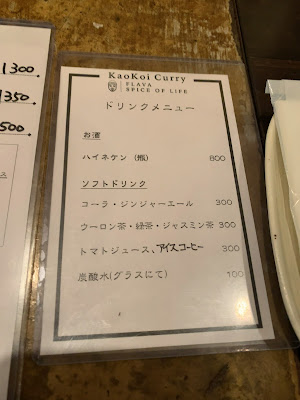 1300
1350
500
KaoKoi Curry
FLAVA
SPICE OF LIFE
ドリンクメニュー
お酒
ハイネケン (瓶) 800
ソフトドリンク
コーラ・ジンジャーエール 300
ウーロン茶・緑茶・ジャスミン茶 300
トマトジュース、アイスコーヒー 300
炭酸水(グラスにて) 100